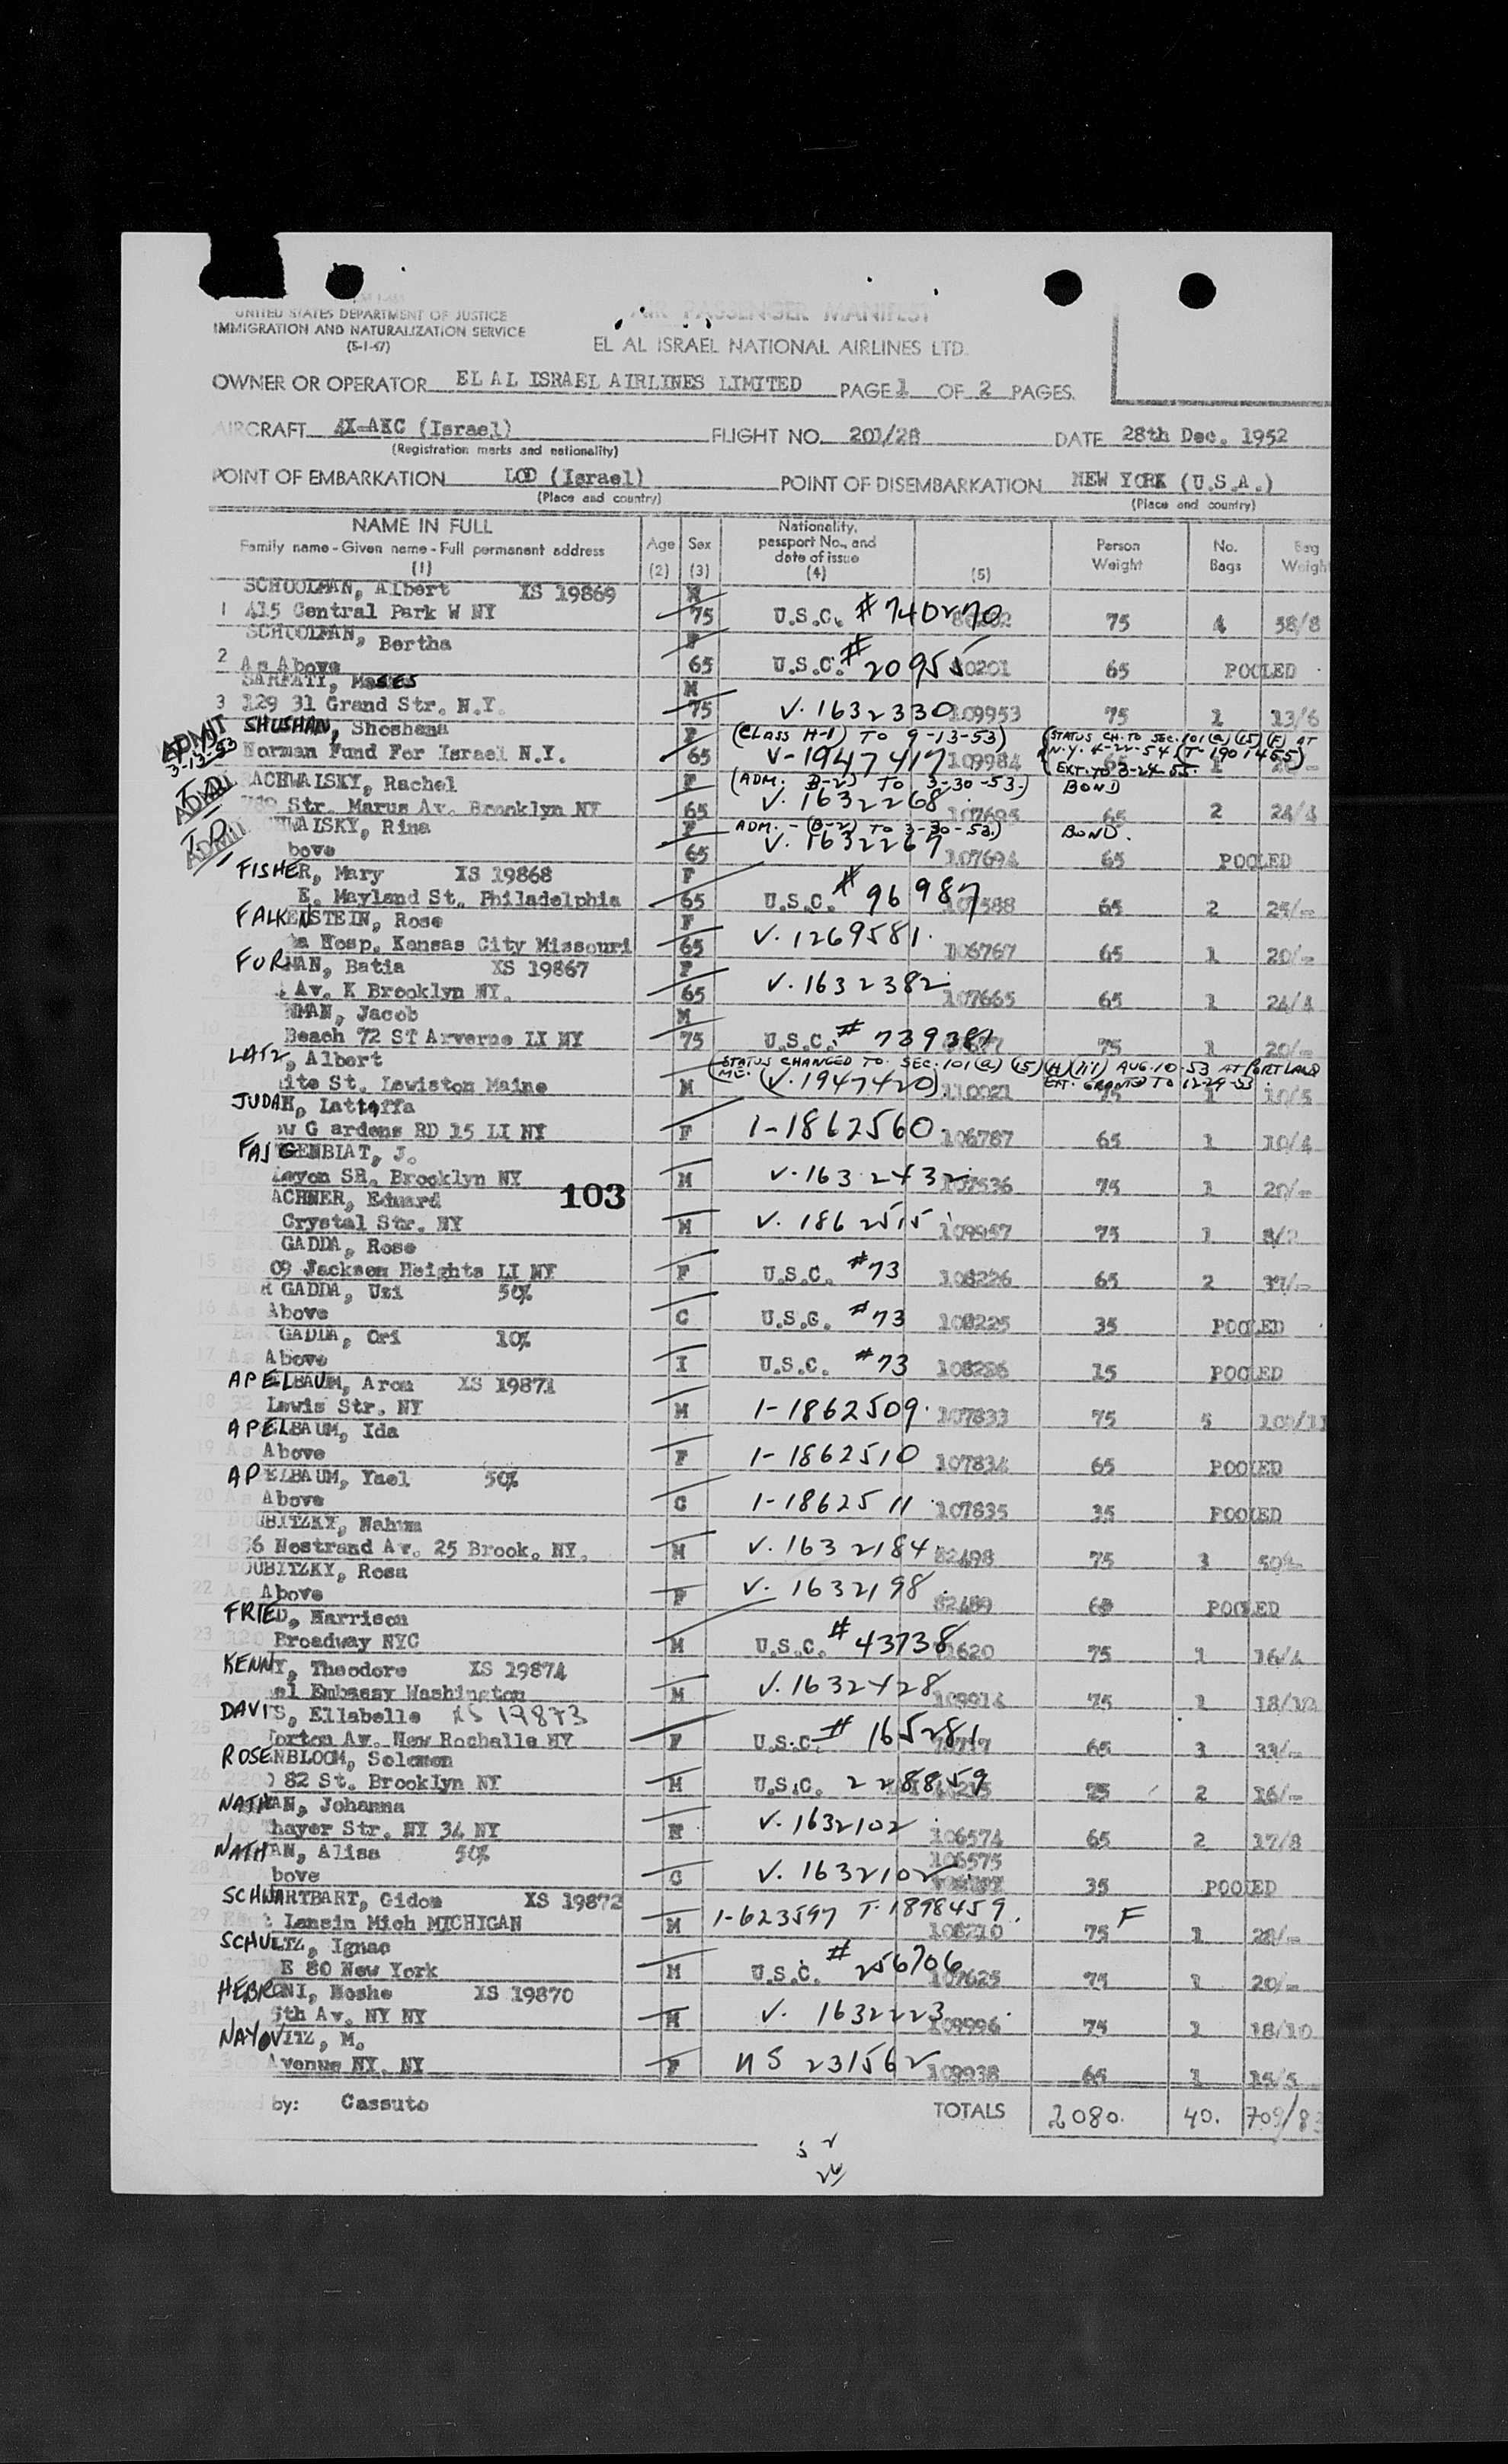 UNITED STATES DEPARTMENT OF JUSTICE
IMMIGRATION AND NATURALIZATION SERVICE
(5-1-47)
AIR PASSENGER MANIFEST
EL AL ISRAEL NATIONAL AIRLINES LTD.
OWNER OR OPERATOR EL AL ISRAEL AIRLINES LIMITED PAGE 1 OF 2 PAGES.
AIRCRAFT 4X-AKC (Israel) FLIGHT NO. 201/28 DATE 28th Dec. 1952
(Registration marks and nationality)
POINT OF EMBARKATION LOD (Israel) POINT OF DISEMBARKATION NEW YORK (U.S.A.)
(Place and country) (Place and country)
NAME IN FULL
Family name - Given name - Full permanent address
(1)
Age (2) Sex (3) Nationality, passport No., and date of issue (4) (5) Person Weight No. Bags Bag Weight
SCHOOLMAN, Albert XS 19869 M
1 415 Central Park W NY 75 U.S.C. #740270 75 4 58/8
SCHOOLMAN, Bertha F
2 As Above 65 U.S.C. #20955 10201 65 POOLED
SARFATI, MOSES M
3 129 31 Grand Str. N.Y. 75 V. 1632330 109953 75 1 13/6
ADMIT 3-13-53 SHUSHAN, Shoshana F (CLASS H-1) TO 9-13-53) (STATUS CH. TO SEC. 101(a)(15)(F) AT
Norman Fund For Israel N.Y. 65 V-1947417 109984 N.Y. 4-22-54 (T-1901455)
EXT. TO 3-24-55.
RACHWALSKY, Rachel F (ADM. B-2) TO 3-30-53.) BOND
ADMIT Str. Marus Av. Brooklyn NY 65 V. 1632268 107695 65 2 24/4
WALSKY, Rina F ADM. - (B-2) TO 3-30-53.) BOND.
ADMIT bove 65 V. 1632269 107694 65 POOLED
FISHER, Mary XS 19868 F
E. Mayland St. Philadelphia 65 U.S.C. #96987 107588 65 2 25/-
FALKENSTEIN, Rose F
Hosp. Kansas City Missouri 65 V. 1269581. 106767 65 1 20/-
FURMAN, Batia XS 19867 F
Av. K Brooklyn NY. 65 V. 1632382 107665 65 1 24/4
NMAN, Jacob M
Beach 72 ST Arverne LI NY 75 U.S.C. #739381 75 1 20/-
LATZ, Albert (STATUS CHANGED TO SEC. 101(a)(15)(H)(iii) AUG. 10-53 AT PORTLAND
ite St. Lewiston Maine M ME. (V. 1947420) 110021 EXT. GRANTED TO 12-29-53. 75 1 10/5
JUDAH, Lattaffa
ow G ardens RD 15 LI NY F 1-1862560 106787 65 1 10/4
FAJGENBLAT, J.
13 Leyon SR. Brooklyn NY M V. 1632432 107536 75 1 20/-
ACHNER, Eduard 103
14 Crystal Str. NY M V. 1862515 109957 75 1 8/2
GADDA, Rose
15 09 Jackson Heights LI NY F U.S.C. #73 108226 65 2 37/-
R GADDA, Uzi 50%
16 As Above C U.S.C. #73 108225 35 POOLED
BAR GADDA, Ori 10%
17 As Above I U.S.C. #73 108226 15 POOLED
APELBAUM, Aron XS 19871
18 32 Lewis Str. NY M 1-1862509. 107833 75 5 102/11
APELBAUM, Ida
19 As Above F 1-1862510 107834 65 POOLED
APELBAUM, Yael 50%
20 As Above C 1-1862511 107835 35 POOLED
DOUBITZKY, Nahum
21 836 Nostrand Av. 25 Brook. NY. M V. 1632184 82498 75 3 50/-
DOUBITZKY, Rosa
22 As Above F V. 1632198. 82499 65 POOLED
FRIED, Harrison
23 Broadway NYC M U.S.C. #43738 620 75 1 16/4
KENNY, Theodore XS 19874
24 el Embassy Washington M V. 1632428 109914 75 1 18/10
DAVIS, Ellabelle XS 19873
25 Horton Av. New Rochelle NY F U.S.C. #165281 65 3 33/-
ROSENBLOOM, Solomon
26 82 St. Brooklyn NY M U.S.C. 228859 75 2 16/-
NATHAN, Johanna
27 Thayer Str. NY 34 NY V. 1632102 106574 65 2 17/8
NATHAN, Alisa 50% 106575
28 bove C V. 1632102 35 POOLED
SCHWARTBART, Gidon XS 19872
29 East Lansin Mich MICHIGAN M 1-623597 T-1898459. 108210 75 F 1 28/-
SCHULTZ, Ignac
30 E 80 New York M U.S.C. #256706 107625 75 1 20/-
HEBRONI, Moshe XS 19870
31 5th Av. NY NY M V. 1632223 109996 75 1 18/10
NAYOVITZ, M.
32 Avenue NY. NY F NS 231562 109938 65 1 15/5
Prepared by: Cassuto TOTALS 2080. 40. 709/8